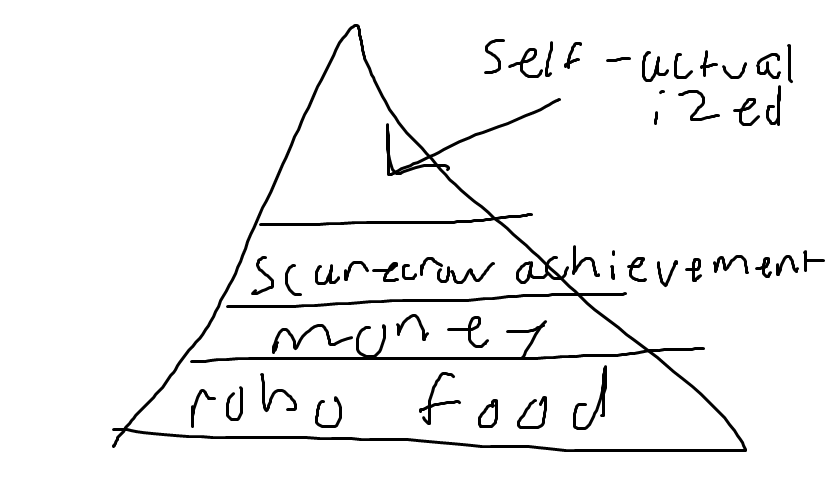 self-actual
ized
scarecrow achievement
money
robo food